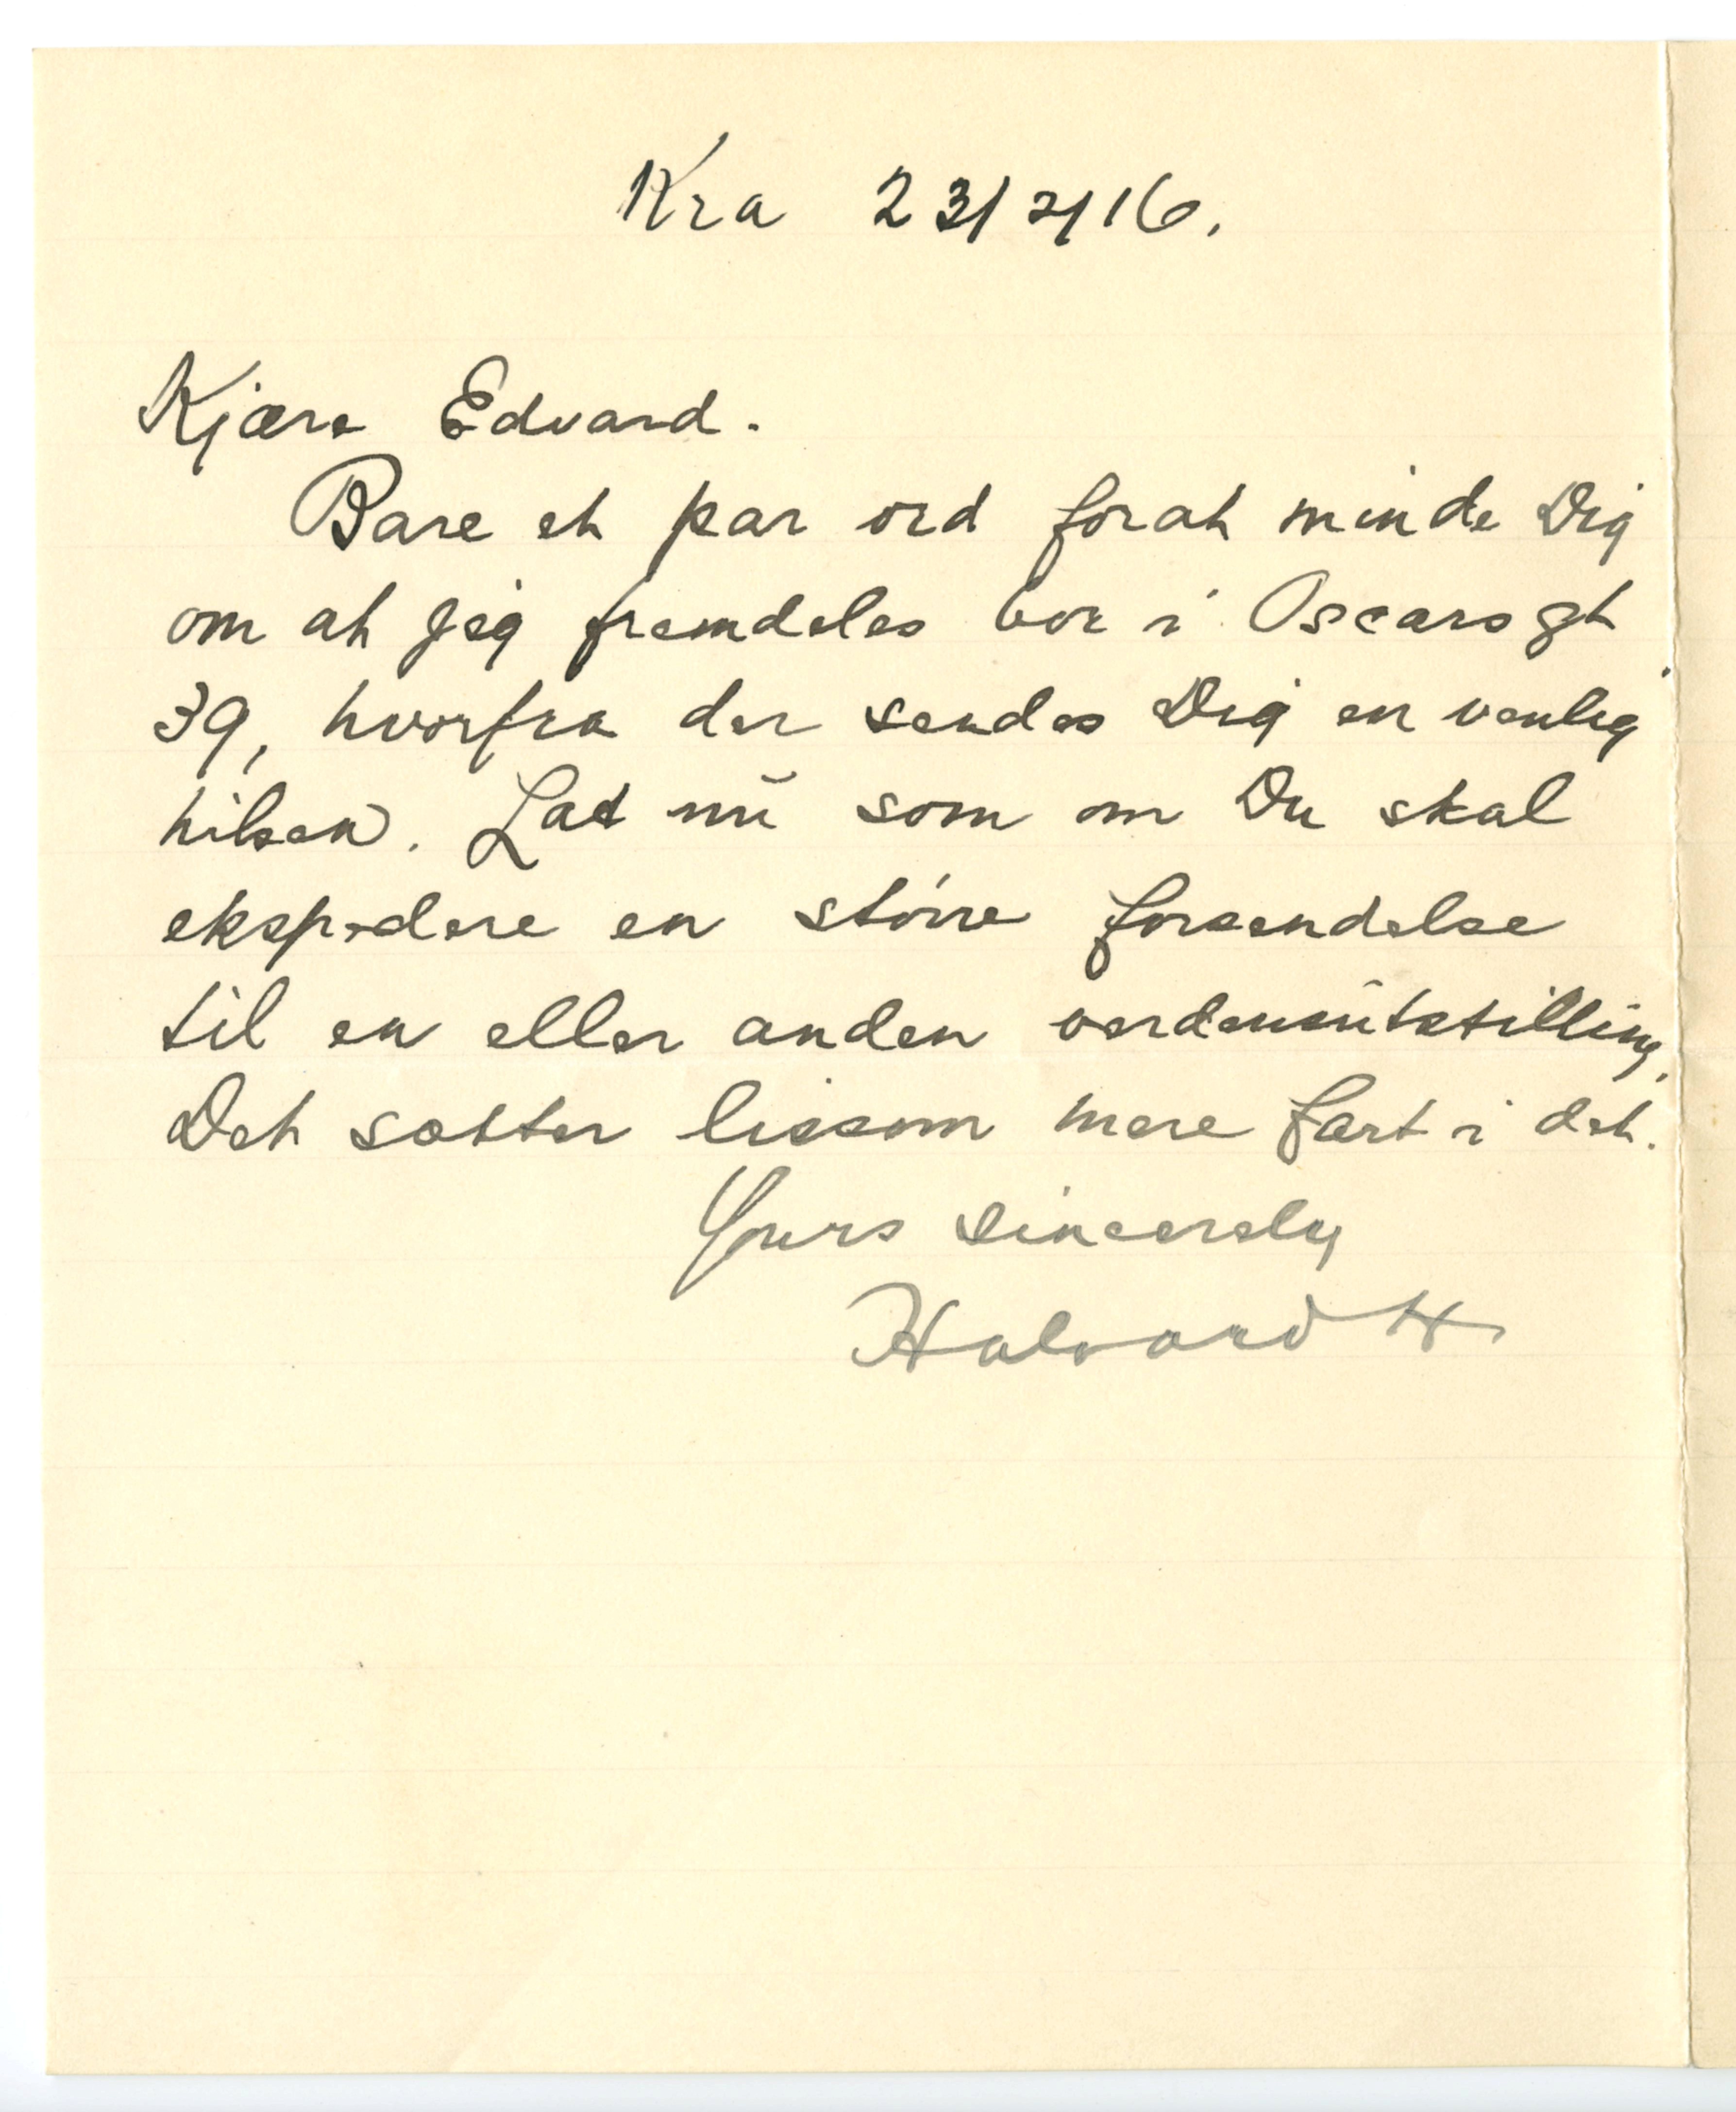 Kra 23/2/16.
Kjære Edvard.
Bare et par ord forat minde Dig
om at jeg fremdeles bor i Oscarsgt
39, hvorfra der sendes Dig en venlig
hilsen. Lad nu som om Du skal
ekspedere en större forsendelse
til en eller anden verdensutstilling.
Det sætter lissom mere fart i det.
Yours sincerely
Halvard H